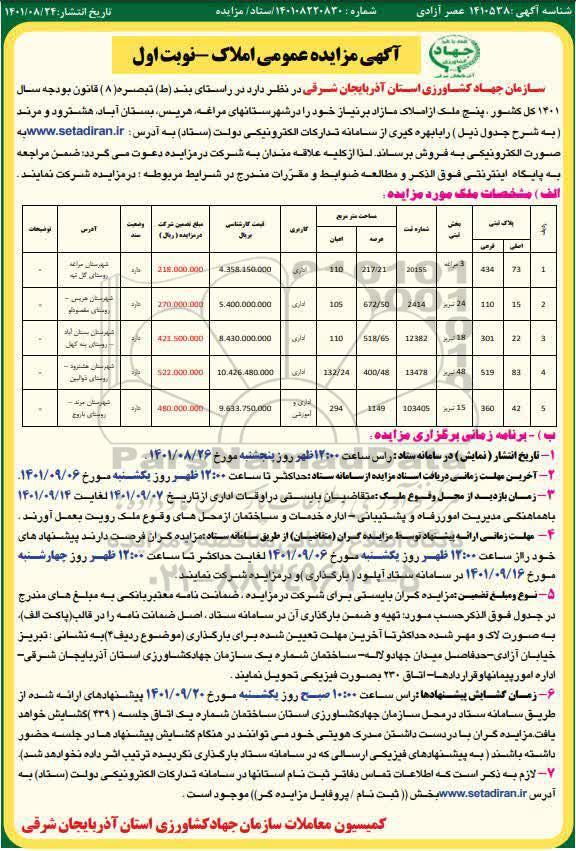 شناسه آگهی: ۱۴۱۰۵۳۸ عصر آزادی
شماره : ۱۴۰۱۰۸۲۲۰۸۳۰/ستاد/ مزایده
تاریخ انتشار:۱۴۰۱/۰۸/۲۴
آگهی مزایده عمومی املاک –نوبت اول
جهاد
سازمان جهاد کشاورزی استان آذربایجان شرقی در نظر دارد در راستای بند (ط) تبصره(۸ ) قانون بودجه سال
۱۴۰۱ کل کشور ، پنج ملک از املاک مازاد بر نیاز خود را در شهرستانهای مراغه، هریس، بستان آباد، هشترود و مرند
( به شرح جدول ذیل ) را با بهره گیری از سامانه تدارکات الکترونیکی دولت (ستاد) به آدرس : www.setadiran.ir به
صورت الکترونیکی به فروش برساند. لذا از کلیه علاقه مندان به شرکت در مزایده دعوت می گردد؛ ضمن مراجعه
به پایگاه اینترنتی فوق الذکر و مطالعه ضوابط و مقررات مندرج در شرایط مربوطه ؛ در مزایده شرکت نمایند .
الف ) مشخصات ملک مورد مزایده :
ردیف | پلاک ثبتی | بخش ثبتی | شماره ثبت | مساحت متر مربع | کاربری | قیمت کارشناسی بریال | مبلغ تضمین شرکت در مزایده ( ریال) | وضعیت سند | آدرس | توضیحات
اصلی | فرعی | عرصه | اعیان
1 | 73 | 434 | 3 مراغه | 20155 | 217/21 | 110 | اداری | 4.358.150.000 | 218.000.000 | دارد | شهرستان مراغه روستای گل تپه | -
2 | 15 | 110 | 24 تبریز | 2414 | 672/50 | 105 | اداری | 5.400.000.000 | 270.000.000 | دارد | شهرستان هریس – روستای مقصودلو | -
3 | 22 | 301 | 18 تبریز | 12382 | 518/65 | 110 | اداری | 8.430.000.000 | 421.500.000 | دارد | شهرستان بستان آباد – روستای بنه کهل | -
4 | 83 | 519 | 48 تبریز | 13478 | 400/48 | 132/24 | اداری | 10.426.480.000 | 522.000.000 | دارد | شهرستان هشترود – روستای ذوالبین | -
5 | 42 | 360 | 15 تبریز | 103405 | 1149 | 294 | اداری و آموزشی | 9.633.750.000 | 480.000.000 | دارد | شهرستان مرند – روستای یاروج | -
ب ) - برنامه زمانی برگزاری مزایده :
۱- تاریخ انتشار ( نمایش) در سامانه ستاد : راس ساعت ۱۲:۰۰ ظهر روز پنجشنبه مورخ ۱۴۰۱/۰۸/۲۶.
۲- آخرین مهلت زمانی دریافت اسناد مزایده از سامانه ستاد :حداکثر تا ساعت ۱۲:۰۰ ظهر روز یکشنبه مورخ ۱۴۰۱/۰۹/۰۶.
۳- زمان بازدید از محل وقوع ملک :متقاضیان بایستی در اوقات اداری از تاریخ ۱۴۰۱/۰۹/۰۷ لغایت ۱۴۰۱/۰۹/۱۴
با هماهنگی مدیریت امور رفاه و پشتیبانی – اداره خدمات و ساختمان از محل های وقوع ملک رویت بعمل آورند .
۴- مهلت زمانی ارائه پیشنهاد توسط مزایده گران (متقاضیان) از طریق سامانه ستاد :مزایده گران فرصت دارند پیشنهاد های
خود را از ساعت ۱۲:۰۰ ظهر روز یکشنبه مورخ ۱۴۰۱/۰۹/۰۶ لغایت حداکثر تا ساعت ۱۲:۰۰ ظهر روز چهارشنبه
مورخ ۱۴۰۱/۰۹/۱۶ در سامانه ستاد آپلود ( بارگذاری )و در مزایده شرکت نمایند .
۵- نوع و مبلغ تضمین : مزایده گران بایستی برای شرکت در مزایده ، ضمانت نامه معتبر بانکی به مبلغ های مندرج
در جدول فوق الذکر حسب مورد؛ تهیه و ضمن بارگذاری آن در سامانه ستاد ، اصل ضمانت نامه را در قالب(پاکت الف)،
به صورت لاک و مهر شده حداکثر تا آخرین مهلت تعیین شده برای بارگذاری (موضوع ردیف۴)به نشانی ؛ تبریز
خیابان آزادی-حدفاصل میدان جهاد و لاله- ساختمان شماره یک سازمان جهاد کشاورزی استان آذربایجان شرقی-
اداره امور پیمانها و قراردادها- اتاق ۲۳۰ بصورت فیزیکی تحویل نمایند .
۶- زمان گشایش پیشنهادها :راس ساعت ۱۰:۰۰ صبح روز یکشنبه مورخ ۱۴۰۱/۰۹/۲۰ پیشنهادهای ارائه شده از
طریق سامانه ستاد در محل سازمان جهاد کشاورزی استان ساختمان شماره یک اتاق جلسه ( ۴۳۹ )گشایش خواهد
یافت.مزایده گران با در دست داشتن مدرک هویتی خود می توانند در هنگام گشایش پیشنهاد ها در جلسه حضور
داشته باشند ( به پیشنهادهای فیزیکی ارسالی که در سامانه ستاد بارگذاری نگردیده ترتیب اثر داده نخواهد شد).
۷- لازم به ذکر است که اطلاعات تماس دفاتر ثبت نام استانها در سامانه تدارکات الکترونیکی دولت (ستاد) به
آدرس www.setadiran.ir بخش (( ثبت نام / پروفایل مزایده گر)) موجود است .
کمیسیون معاملات سازمان جهاد کشاورزی استان آذربایجان شرقی